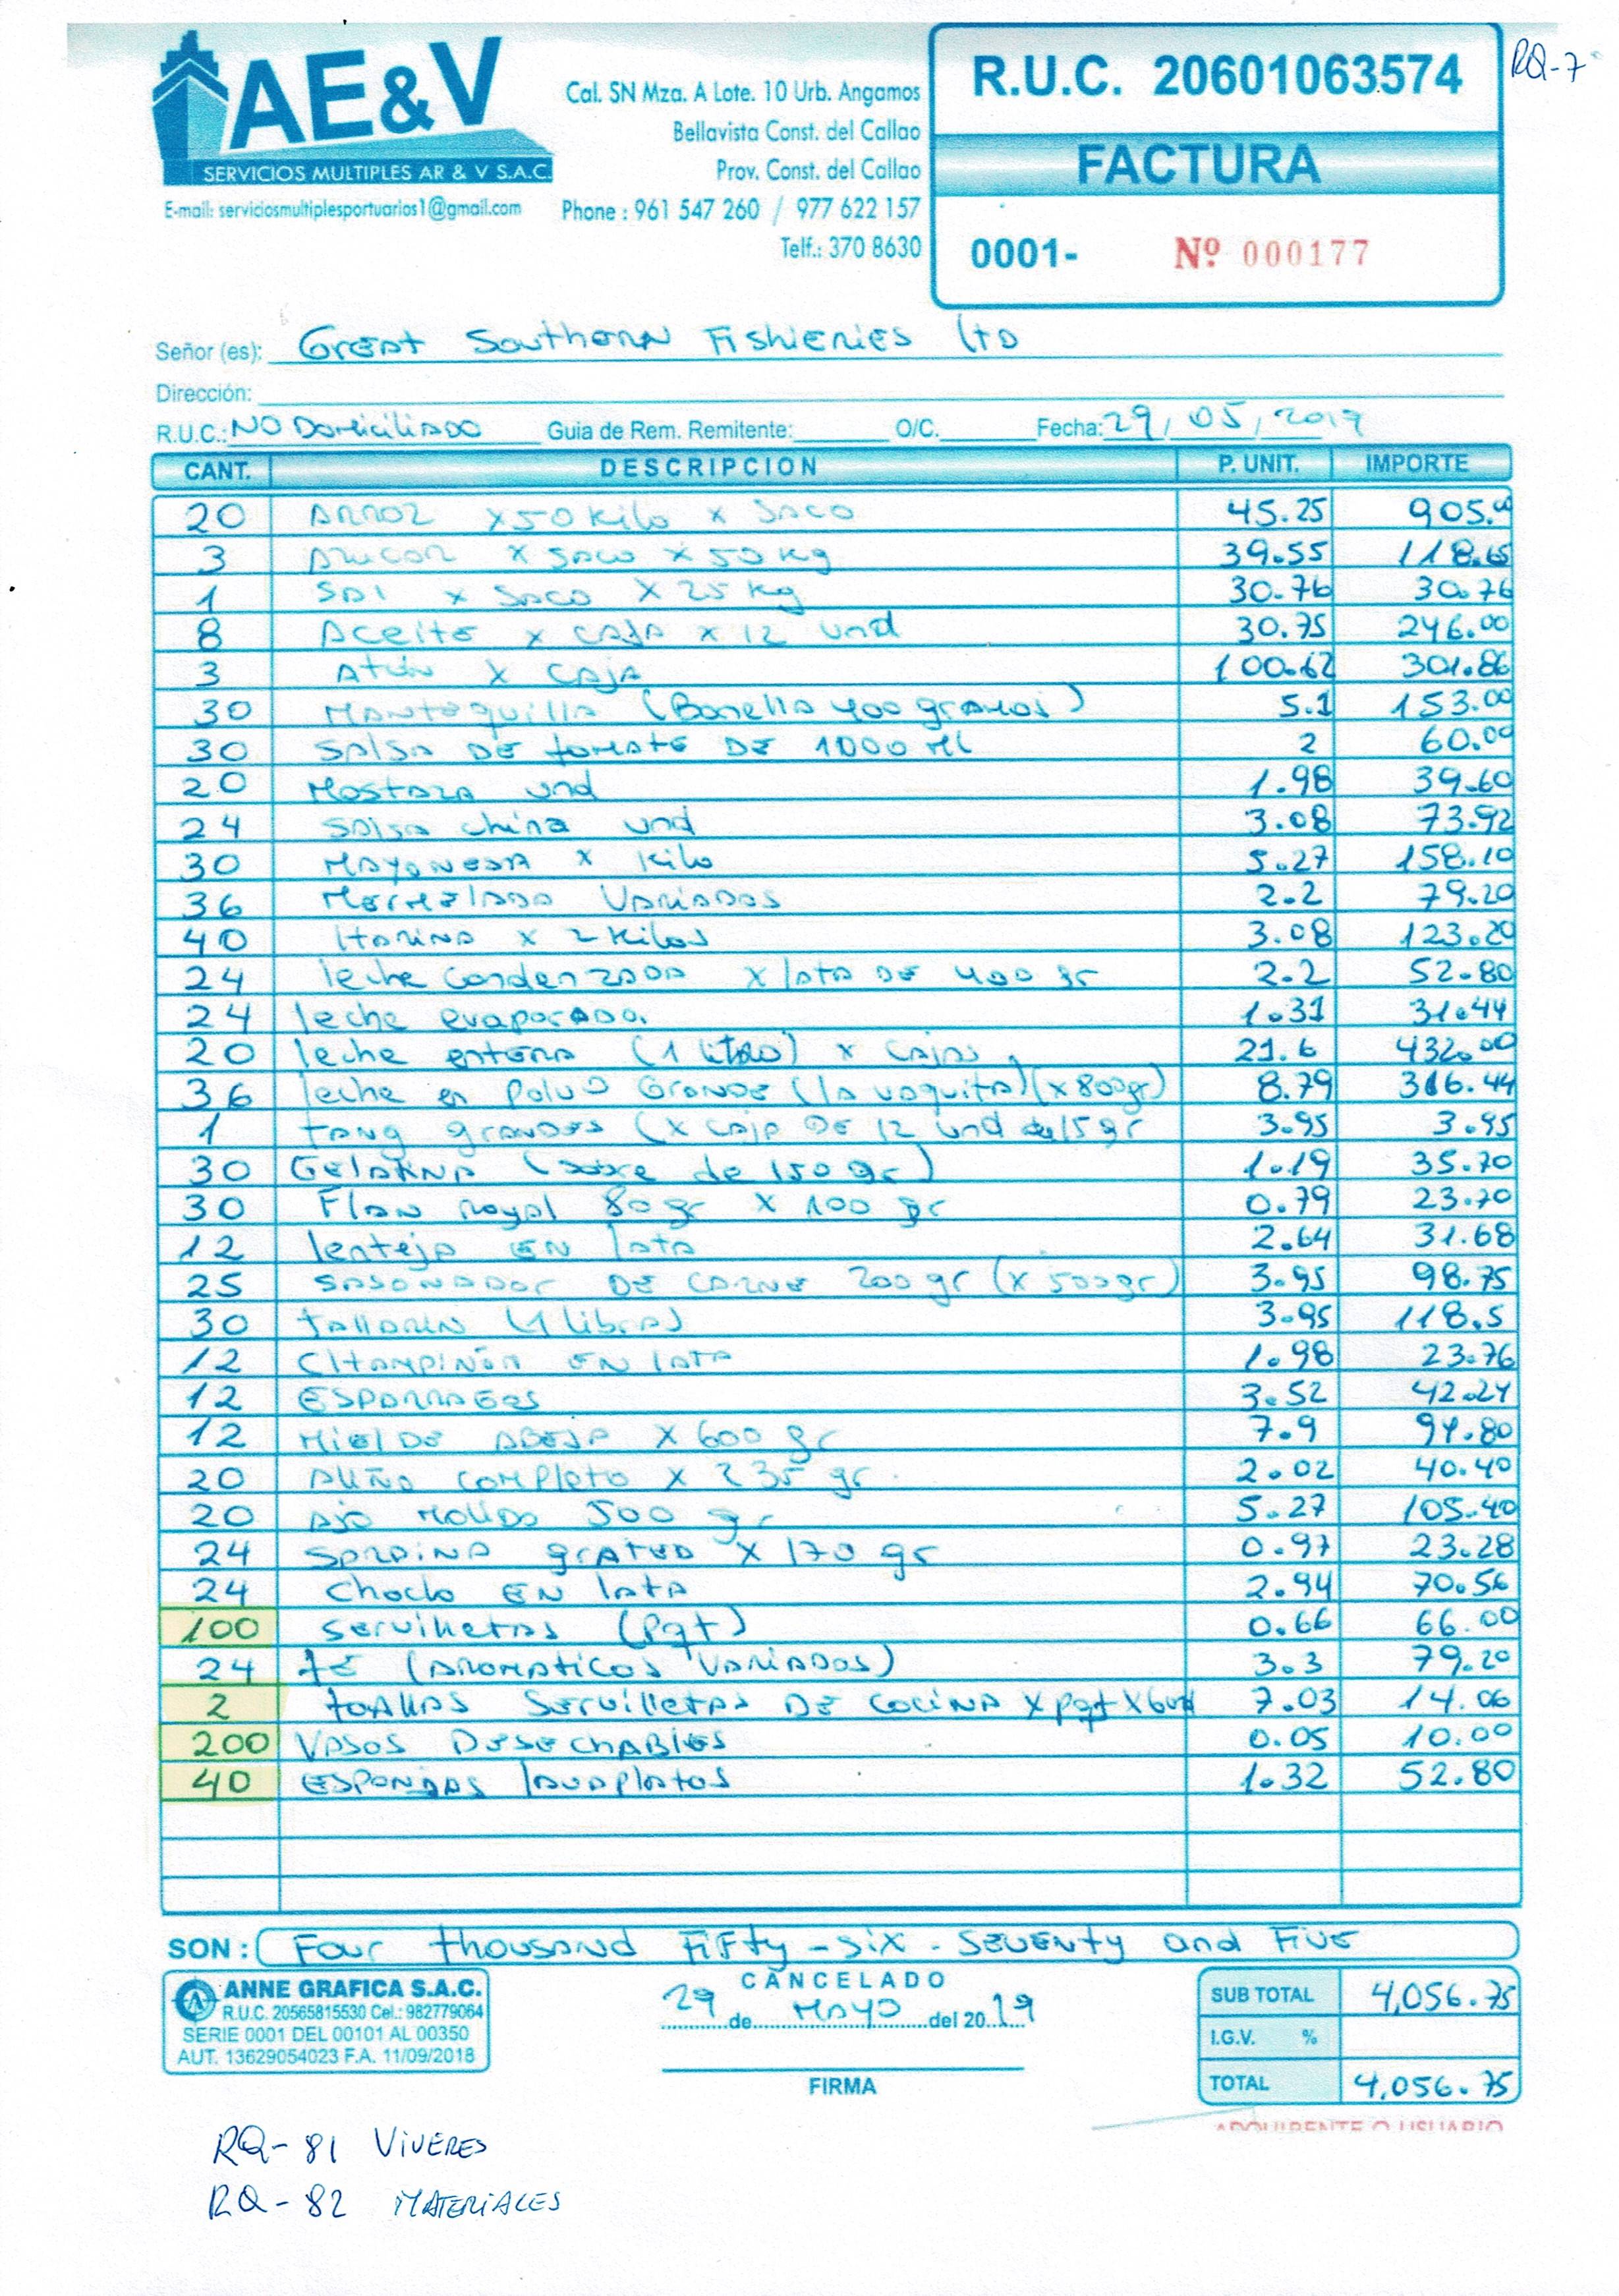 AE&V
SERVICIOS MULTIPLES AR & V S.A.C.
E-mail: serviciosmultiplesportuarios1@gmail.com
Cal. SN Mza. A Lote. 10 Urb. Angamos
Bellavista Const. del Callao
Prov. Const. del Callao
Phone : 961 547 260 / 977 622 157
Telf.: 370 8630
R.U.C. 20601063574
FACTURA
0001- Nº 000177
RQ-7
Señor (es): Great Southern Fishieries Ltd
Dirección:
R.U.C.: NO Domiciliado Guia de Rem. Remitente: O/C. Fecha: 29/05/2019
CANT. DESCRIPCION P. UNIT. IMPORTE
20 Arroz x50 Kilo x Saco 45.25 905.00
3 Azucar x Saco x 50 Kg 39.55 118.65
1 Sal x Saco x 25 Kg 30.76 30.76
8 Aceite x caja x 12 und 30.75 246.00
3 Atún x Caja 100.62 301.86
30 Mantequilla (Bonella 400 gramos) 5.1 153.00
30 Salsa de tomate de 1000 Ml 2 60.00
20 Mostaza und 1.98 39.60
24 Salsa china und 3.08 73.92
30 Mayonesa x Kilo 5.27 158.10
36 Mermelada Variados 2.2 79.20
40 Harina x 2 Kilos 3.08 123.20
24 leche Condenzada x lata de 400 gr 2.2 52.80
24 leche evaporada. 1.31 31.44
20 leche entera (1 litro) x cajas 21.6 432.00
36 leche en Polvo Grande (la vaquita) (x800gr) 8.79 316.44
1 tang grandes (x caja de 12 und de 15 gr 3.95 3.95
30 Gelatina (sobre de 150 gr) 1.19 35.70
30 Flan royal 80gr x 100 gr 0.79 23.70
12 lenteja en lata 2.64 31.68
25 Sasonador de carne 200 gr (x 500gr) 3.95 98.75
30 tallarin (1 libras) 3.95 118.5
12 Champiñon en lata 1.98 23.76
12 Esparragos 3.52 42.24
12 Miel de abeja x 600 gr 7.9 94.80
20 Aliño completo x 235 gr. 2.02 40.40
20 Ajo Molido 500 gr 5.27 105.40
24 Sardina grated x 170 gr 0.97 23.28
24 Choclo en lata 2.94 70.56
100 Servilletas (Pqt) 0.66 66.00
24 Té (aromaticos variados) 3.3 79.20
2 toallas Servilletas de cocina x pqt x 6und 7.03 14.06
200 Vasos Desechables 0.05 10.00
40 Esponjas lavaplatos 1.32 52.80
SON : Four thousand Fifty-six. Seventy and Five
ANNE GRAFICA S.A.C.
R.U.C. 20565815530 Cel.: 982779064
SERIE 0001 DEL 00101 AL 00350
AUT. 13629054023 F.A. 11/09/2018
CANCELADO
29 de Mayo del 2019
FIRMA
SUB TOTAL 4,056.75
I.G.V. %
TOTAL 4,056.75
ADQUIRENTE O USUARIO
RQ-81 VIVERES
RQ-82 MATERIALES